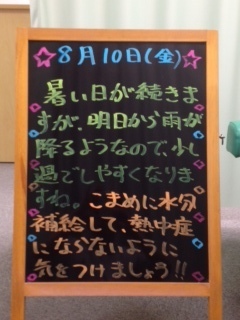 8月10日(金)
暑い日が続きま
すが、明日から雨が
降るようなので、少し
過ごしやすくなりま
すね。こまめに水分
補給して、熱中症
にならないように
気をつけましょう!!